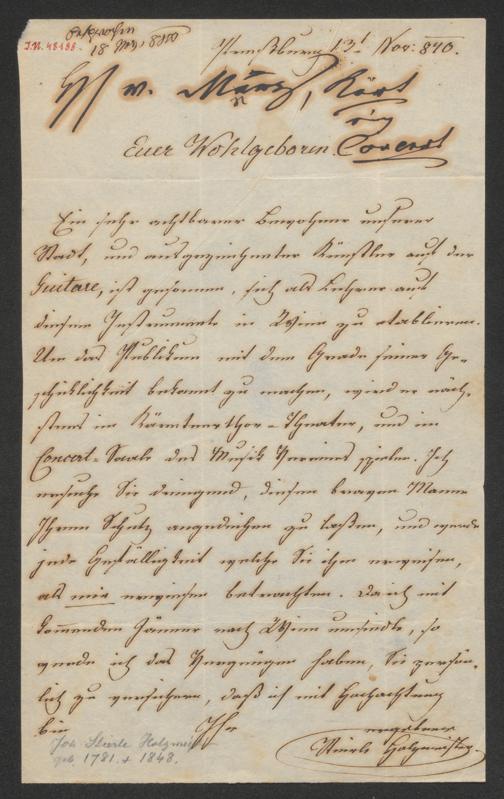 J.N. 48488.
18 Nov. 840
Preßburg 13t Nov: 840.
H v. März, Kärt
Euer Wohlgeboren. Concert
Ein sehr achtbarer Bewohner unserer
Stadt, und ausgezeichneter Künstler auf der
Guitare, ist gesonnen, sich als Lehrer auf
diesem Instrumente in Wien zu etablieren.
Um das Publikum mit dem Grade seiner Ge-
schicklichkeit bekannt zu machen, wird er näch-
stens im Kärntnerthor-Theater, und im
Concert-Saale des Musik Vereines spielen. Ich
ersuche Sie dringend, diesem braven Manne
Ihren Schutz angedeihen zu laßen, und werde
jede Gefälligkeit welche Sie ihm erweisen,
als mir erwiesen betrachten. Da ich mit
kommenden Jänner nach Wien umsiedle, so
werde ich das Vergnügen haben, Sie persön-
lich zu versichern, daß ich mit Hochachtung
bin Ihr ergebener
Stierle Holzmeister
Joh. Stierle Holzmeist
geb. 1781. + 1848.